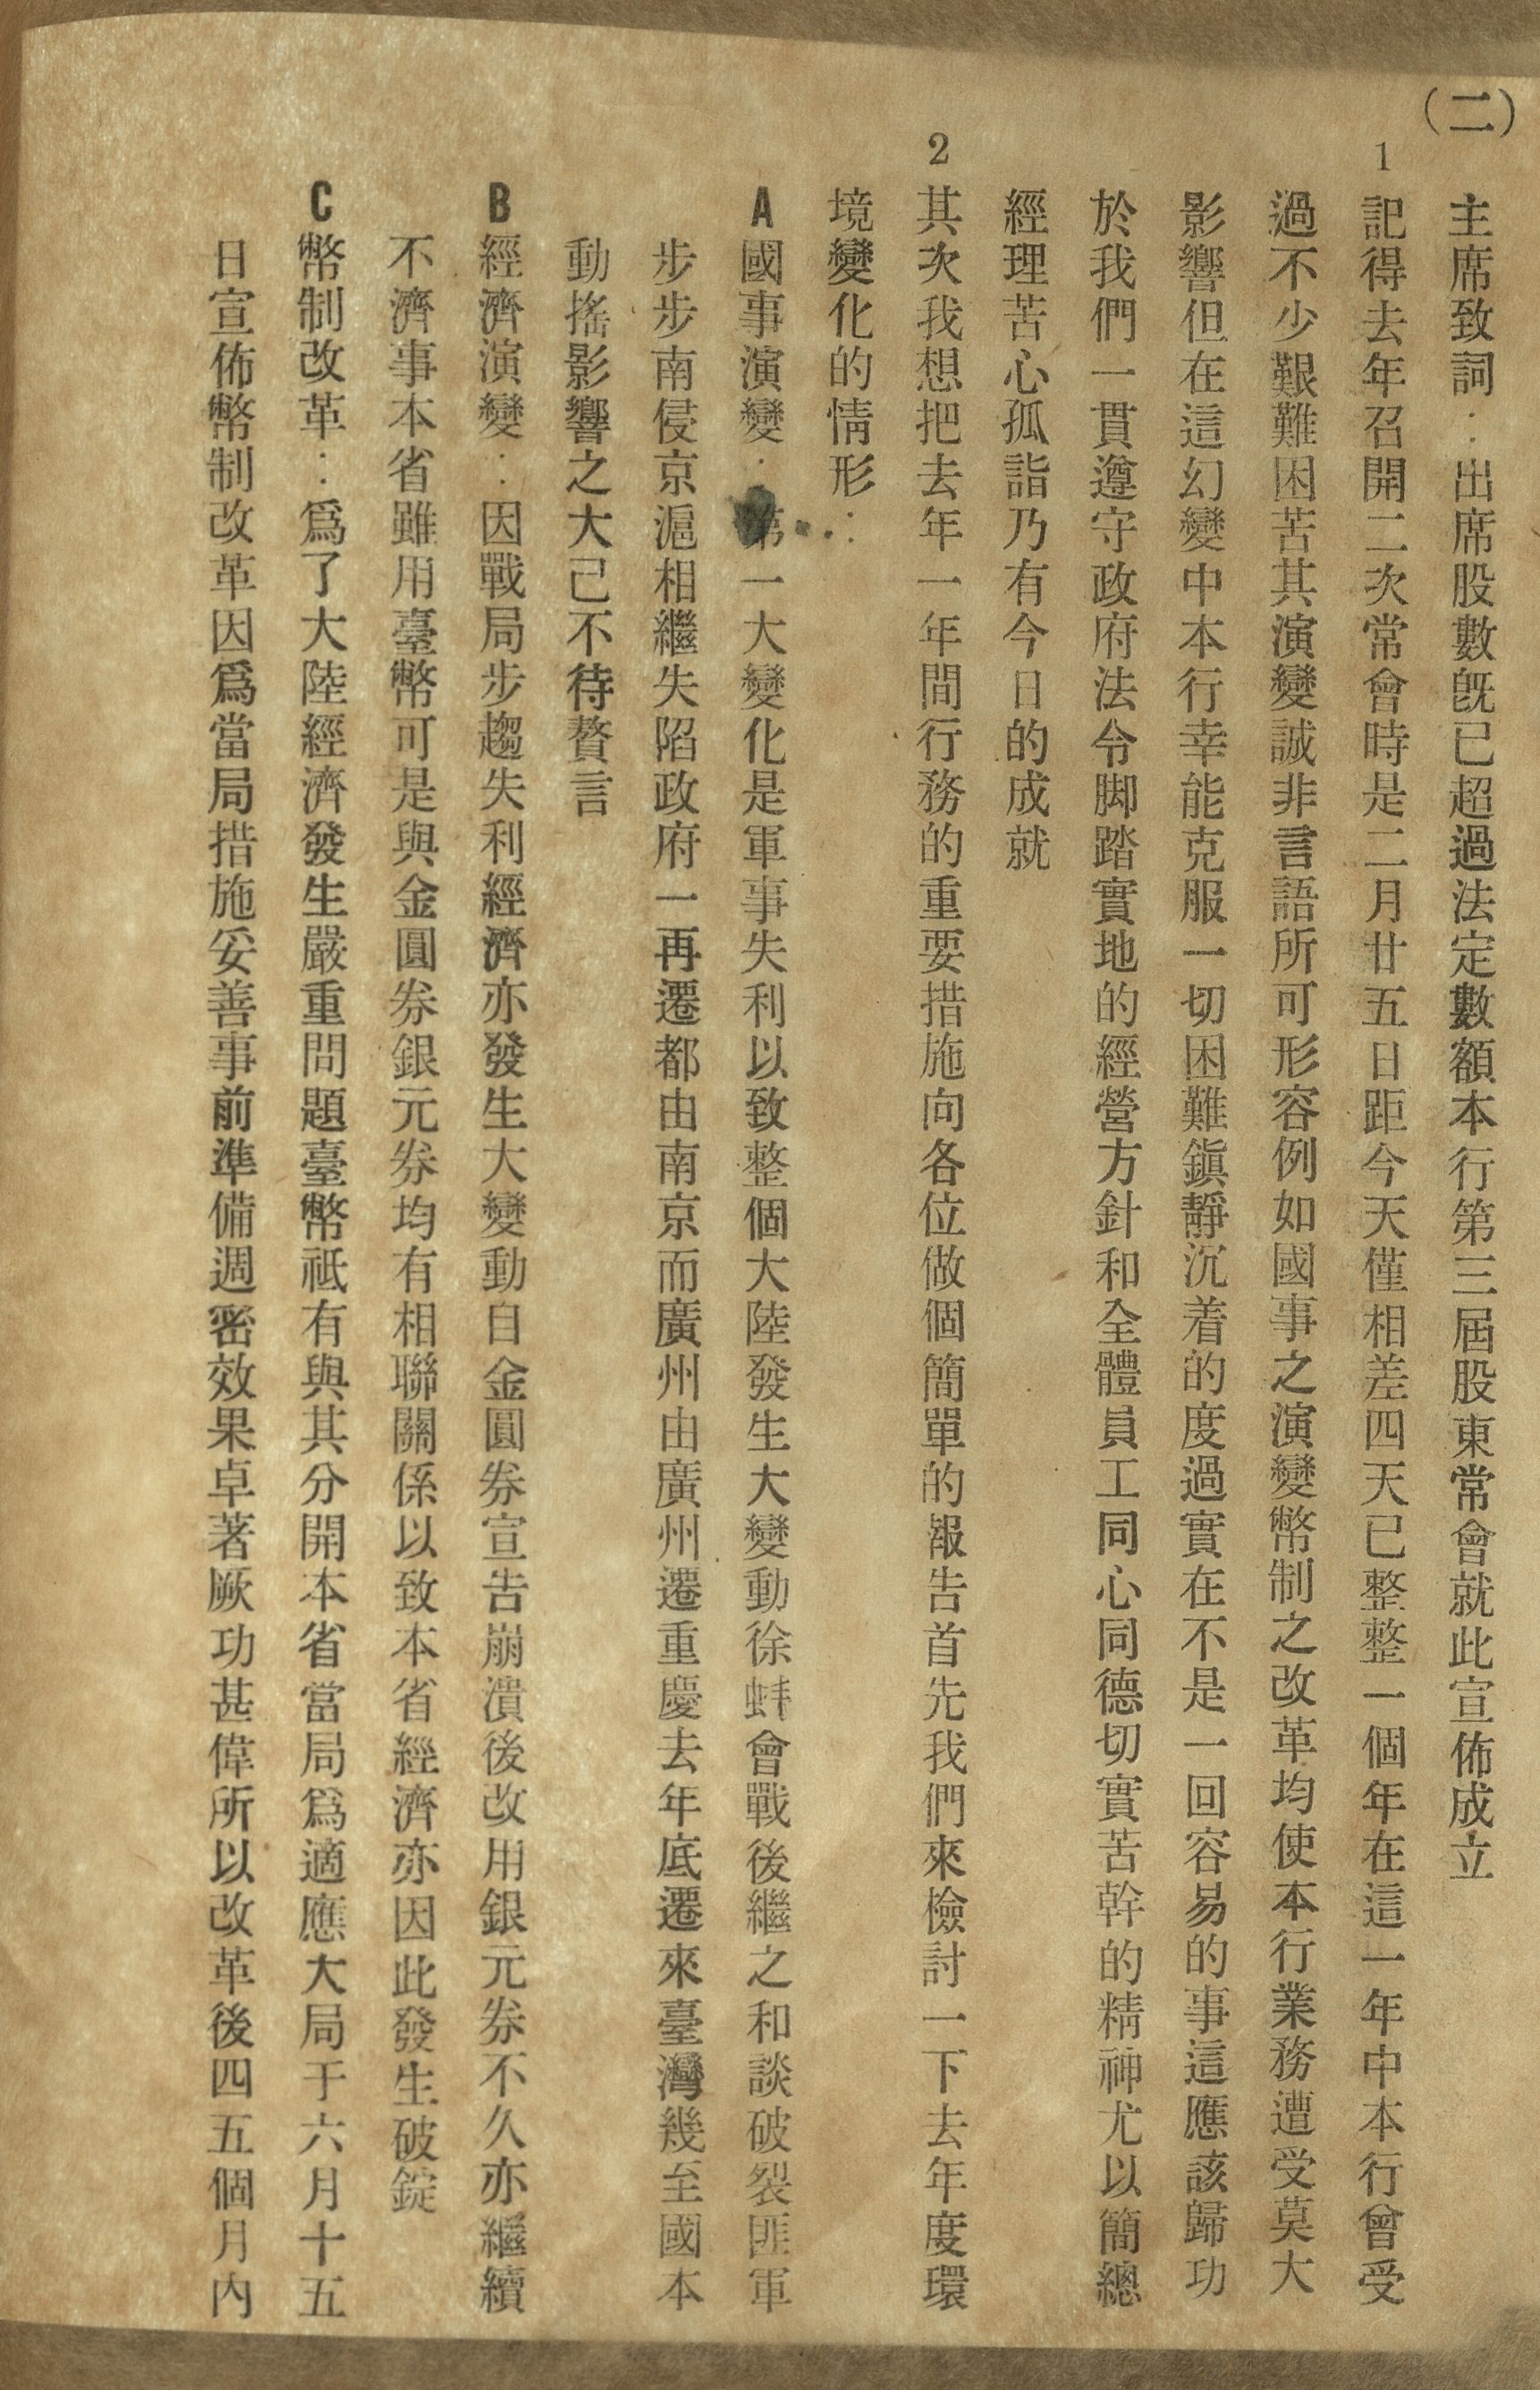 (二)
主席致詞：出席股數既已超過法定數額本行第三屆股東常會就此宣佈成立
1 記得去年召開二次常會時是二月廿五日距今天僅相差四天已整整一個年在這一年中本行曾受
過不少艱難困苦其演變誠非言語所可形容例如國事之演變幣制之改革均使本行業務遭受莫大
影響但在這幻變中本行幸能克服一切困難鎭靜沉着的度過實在不是一回容易的事這應該歸功
於我們一貫遵守政府法令脚踏實地的經營方針和全體員工同心同德切實苦幹的精神尤以簡總
經理苦心孤詣乃有今日的成就
2 其次我想把去年一年間行務的重要措施向各位做個簡單的報告首先我們來檢討一下去年度環
境變化的情形：
A 國事演變：第一大變化是軍事失利以致整個大陸發生大變動徐蚌會戰後繼之和談破裂匪軍
步步南侵京滬相繼失陷政府一再遷都由南京而廣州由廣州遷重慶去年底遷來臺灣幾至國本
動搖影響之大已不待贅言
B 經濟演變：因戰局步趨失利經濟亦發生大變動自金圓券宣告崩潰後改用銀元券不久亦繼續
不濟事本省雖用臺幣可是與金圓券銀元券均有相聯關係以致本省經濟亦因此發生破錠
C 幣制改革：爲了大陸經濟發生嚴重問題臺幣祗有與其分開本省當局爲適應大局于六月十五
日宣佈幣制改革因爲當局措施妥善事前準備週密效果卓著厥功甚偉所以改革後四五個月內